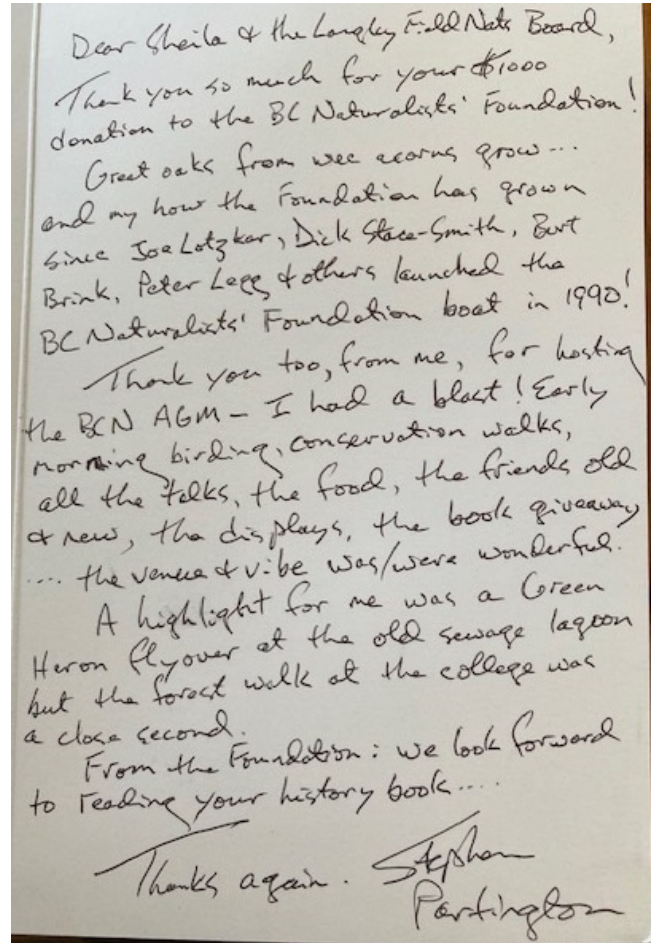 Dear Sheila & the Langley Field Nats Board,
Thank you so much for your $1000
donation to the BC Naturalists' Foundation!
Great oaks from wee acorns grow...
and my how the Foundation has grown
since Joe Lotzkar, Dick Stace-Smith, Bert
Brink, Peter Legg & others launched the
BC Naturalists' Foundation boat in 1990!
Thank you too, from me, for hosting
the BCN AGM – I had a blast! Early
morning birding, conservation walks,
all the talks, the food, the friends old
& new, the displays, the book giveaway
.... the venue & vibe was/were wonderful.
A highlight for me was a Green
Heron flyover at the old sewage lagoon
but the forest walk at the college was
a close second.
From the Foundation: we look forward
to reading your history book....
Thanks again. Stephen
Partington